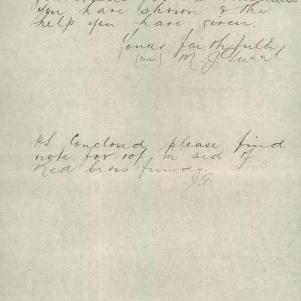 you have shown & the
help you have given.
Yours faithfully
(Mrs) M. J. Gurr
PS Enclosed please find
note for 10/- in aid of
Red Cross funds.
J.G.